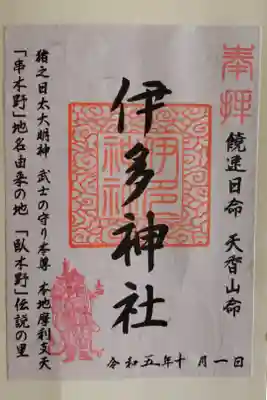 奉拝
饒速日命 天香山命
伊多神社
猪之日太大明神 武士の守り本尊 本地摩利支天
「串木野」地名由来の地 「臥木野」伝説の里
令和五年十月一日